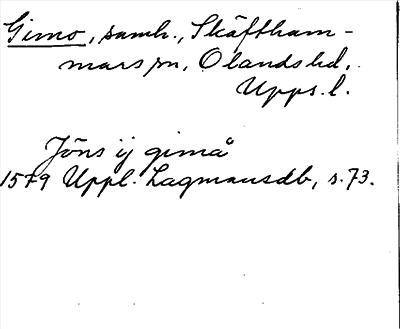 Gimo, samh., Skäftham-
mars sn, Olands hd,
Upps. l.
Jöns ij gimå
1579 Uppl. Lagmansdb, s. 73.